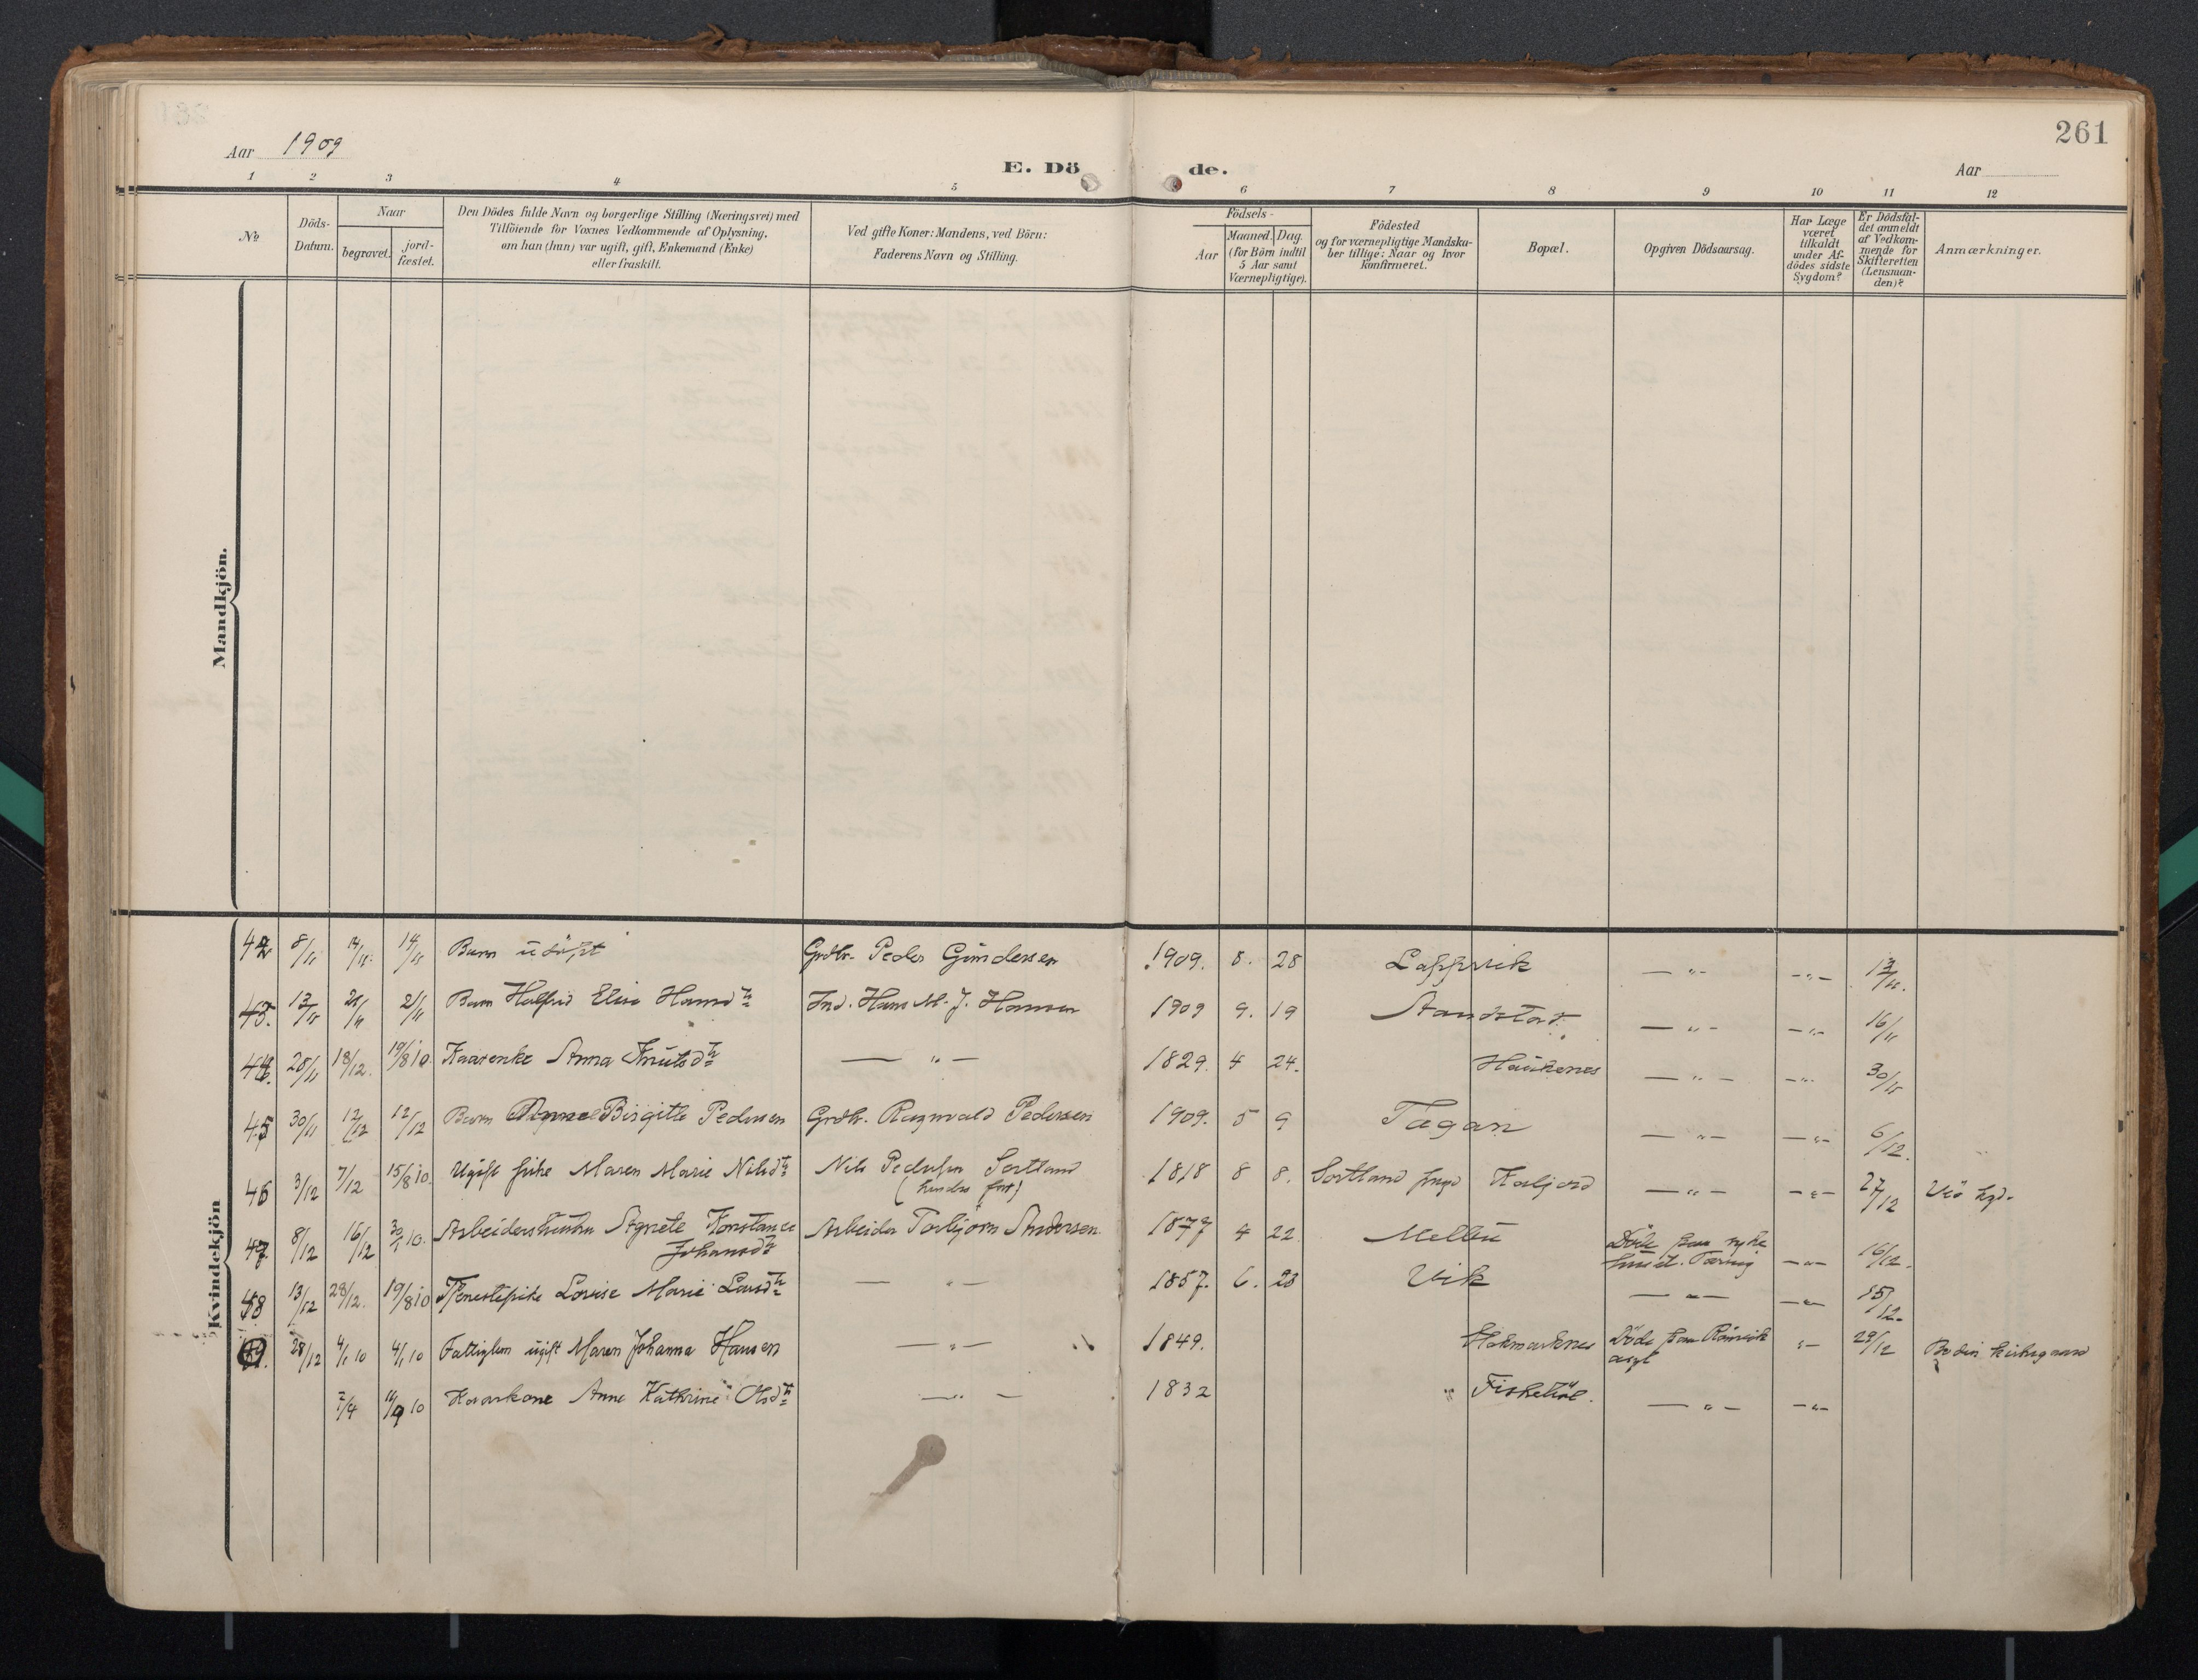 261
Aar 1909
E. Dö de.
Aar
1 2 3 4 5 6 7 8 9 10 11 12
№
Döds-
Datum.
Naar
begravet.
jord-
fæstet.
Den Dödes fulde Navn og borgerlige Stilling (Næringsvei) med
Tilföiende for Voxnes Vedkommende af Oplysning,
om han (hun) var ugift, gift, Enkemand (Enke)
eller fraskilt.
Ved gifte Koner: Mandens, ved Börn:
Faderens Navn og Stilling.
Födsels-
Aar
Maaned. Dag.
(for Börn indtil
5 Aar samt
Værnepligtige).
Födested
og for værnepligtige Mandska-
ber tillige: Naar og hvor
konfirmeret.
Bopæl.
Opgiven Dödsaarsag.
Har Læge
været
tilkaldt
under Af-
dödes sidste
Sygdom?
Er Dödsfal-
det anmeldt
af Vedkom-
mende for
Skifteretten
(Lensman-
den)?
Anmærkninger.
Mandkjön.
Kvindekjön
42 8/11 14/11. 14/11 Barn udöpt Grdbr. Peder Gundersen 1909. 8. 28 — " - - " - 13/11.
43. 13/11 21/11 21/11 Barn Halfrid Elise Hansd. Ind. Hans M. J. Hansen 1909 9. 19 — " - — " - 16/11
44. 28/11 18/12. 19/8 10 Kaarenke Anna Knutsd. — " — 1829. 4 24. Haukenes — " — - " - 30/11
45 30/11 12/12 12/12 Barn Birgitte Pedersen Grdbr. Ragnvald Pedersen 1909. 5 9 — " — — " - 6/12.
46 3/12 7/12 15/8 10. Ugift pike Maren Marie Nilsd. Nils Pedersen Sortland 1818 8 8. Sortland — " — — " - 27/12
47 8/12 16/12 30/1 10. Arbeiderskone Agnete Konstance
Johansd.
Arbeider Torbjörn Andersen 1877 4 22. Melbu Döde paa syke
huset. Tæring — " - 16/12.
48 13/12 28/12. 19/8 10 Tjenestepike Lovise Marie Larsd. — " — 1857. 6. 23 Vik — " — — " - 15/12.
49. 28/12 4/1 10 4/1 10 Fattiglem ugift Maren Johanna Hansen — " — 1849. Stokmarknes Döde paa Rönvik
asyl " - 29/12 Bodin kirkegaard
7/4 10 Kaarkone Anna Kathrine Olsd. — " — 1832 " — " — - " -